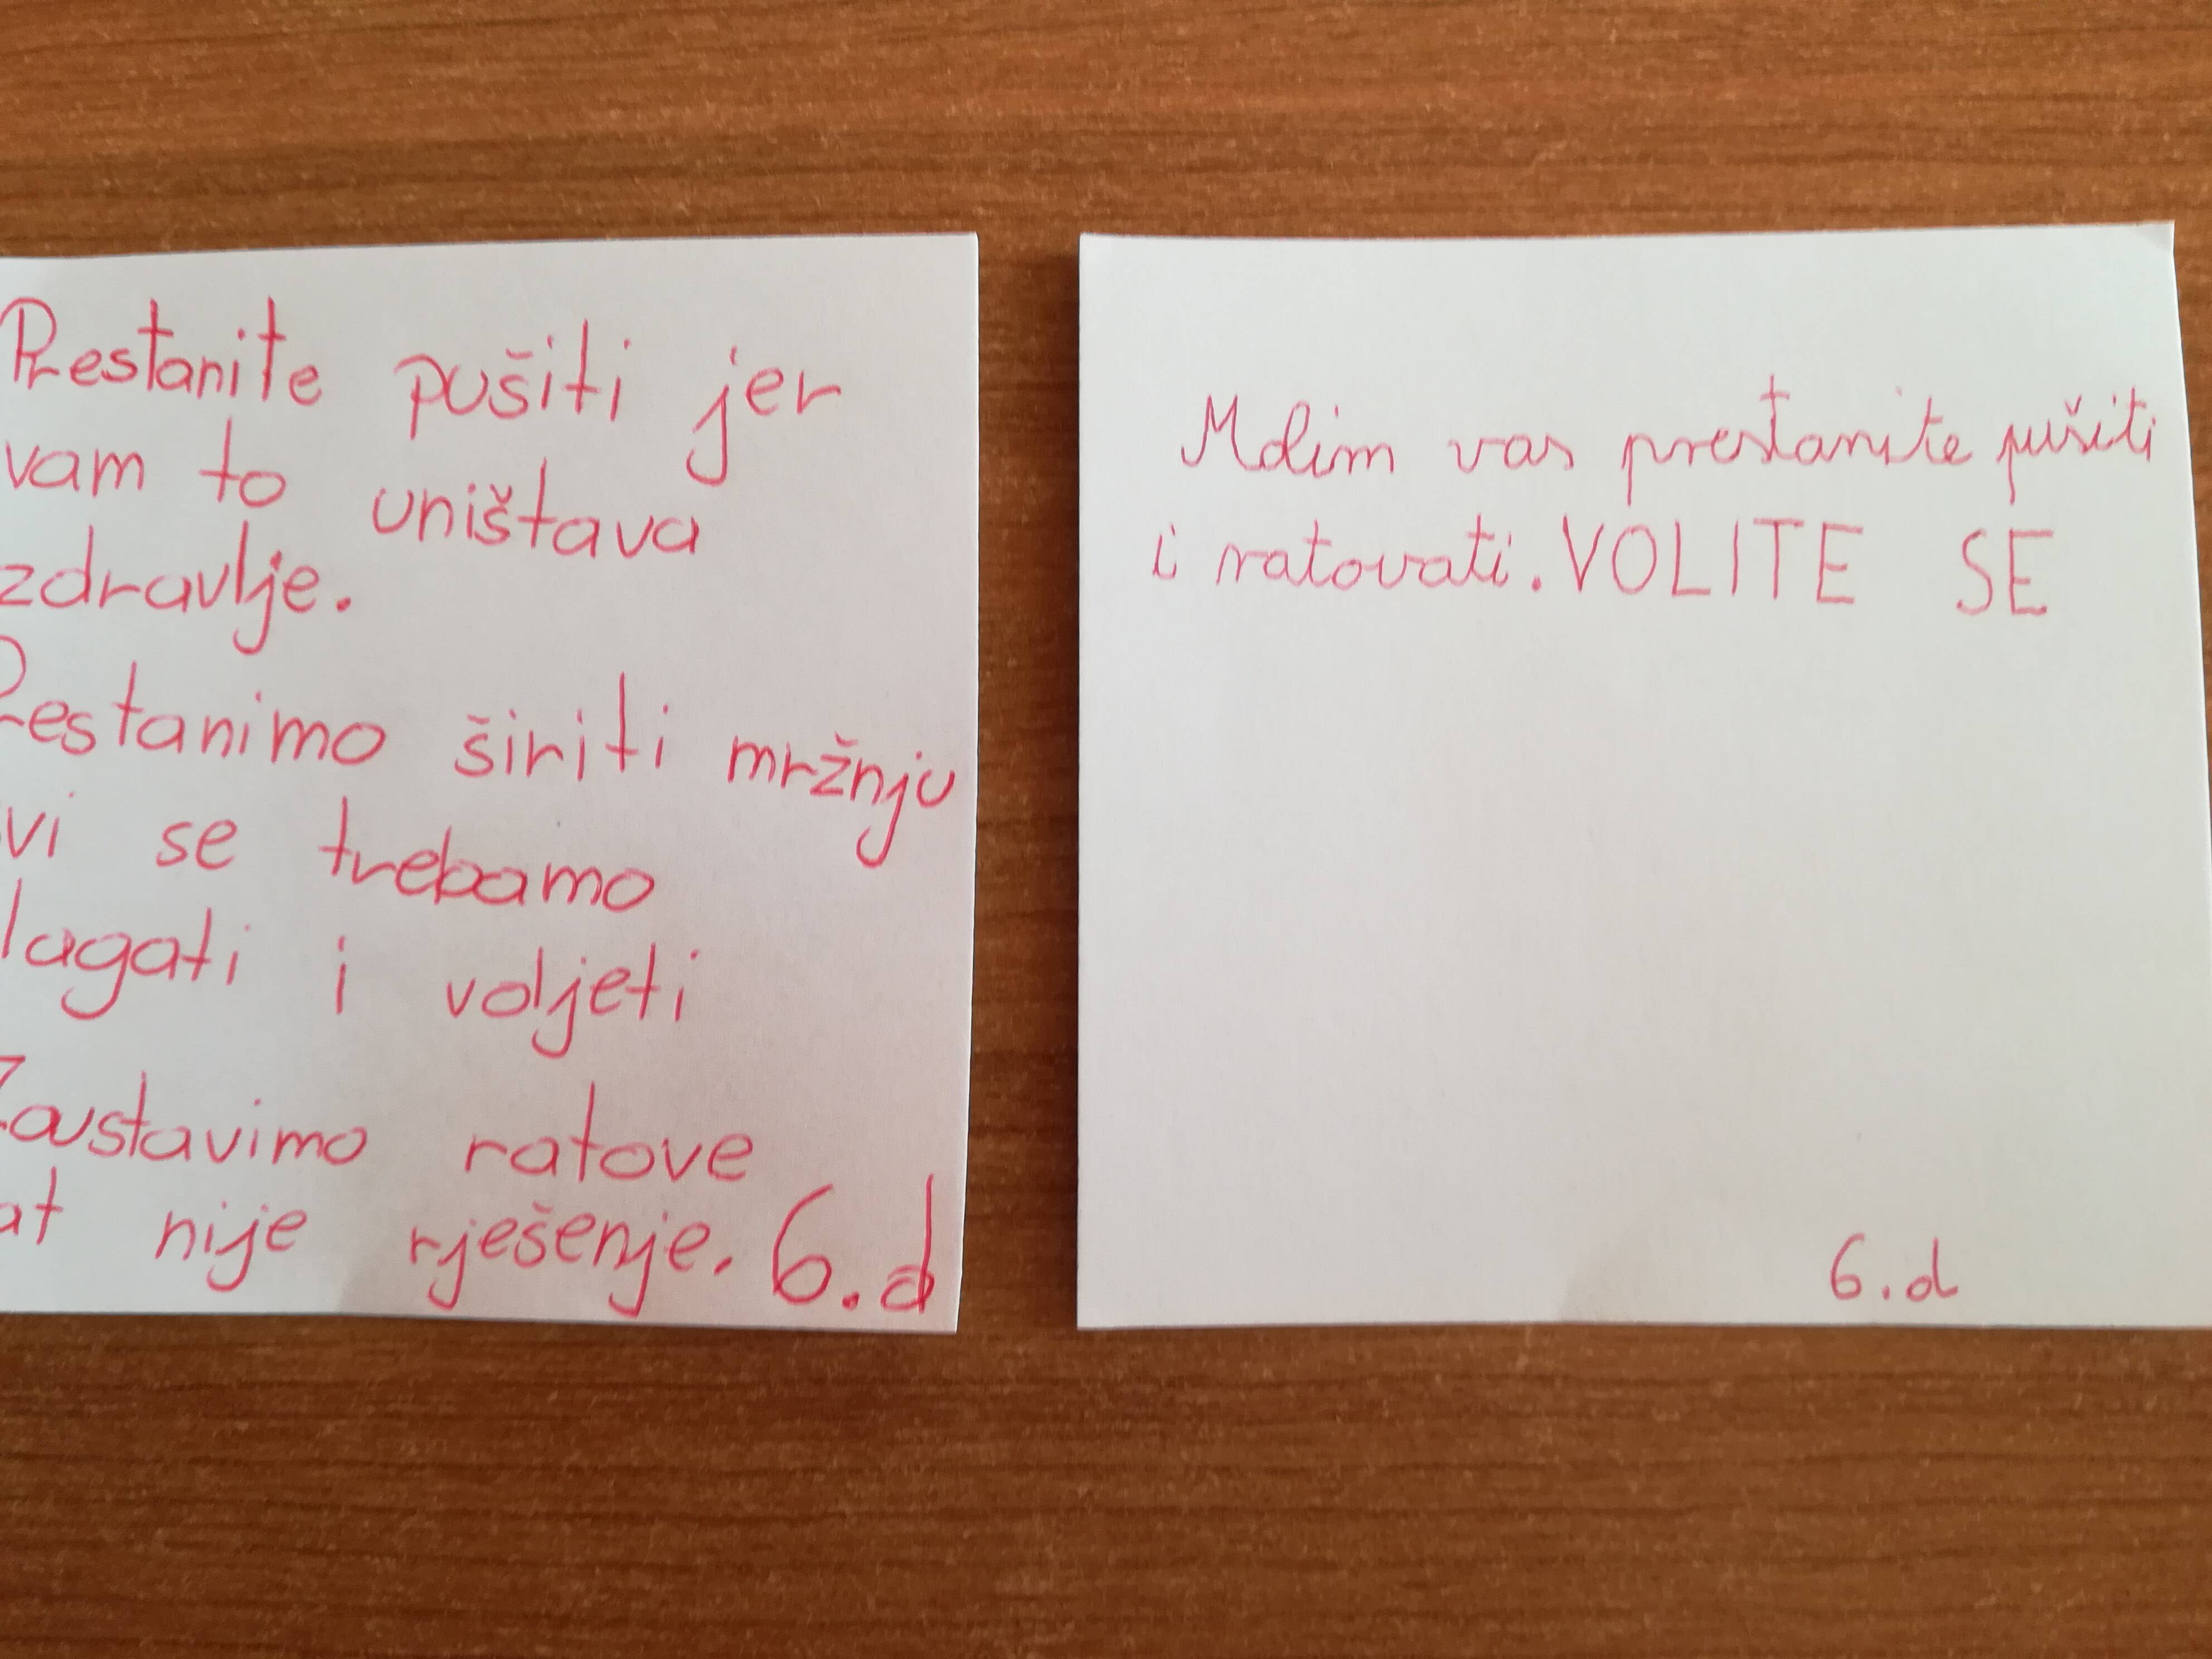 Prestanite pušiti jer
vam to uništava
zdravlje.
Prestanimo širiti mržnju
svi se trebamo
slagati i voljeti
Zaustavimo ratove
rat nije rješenje. 6.d
Molim vas prestanite pušiti
i ratovati. VOLITE SE
6.d